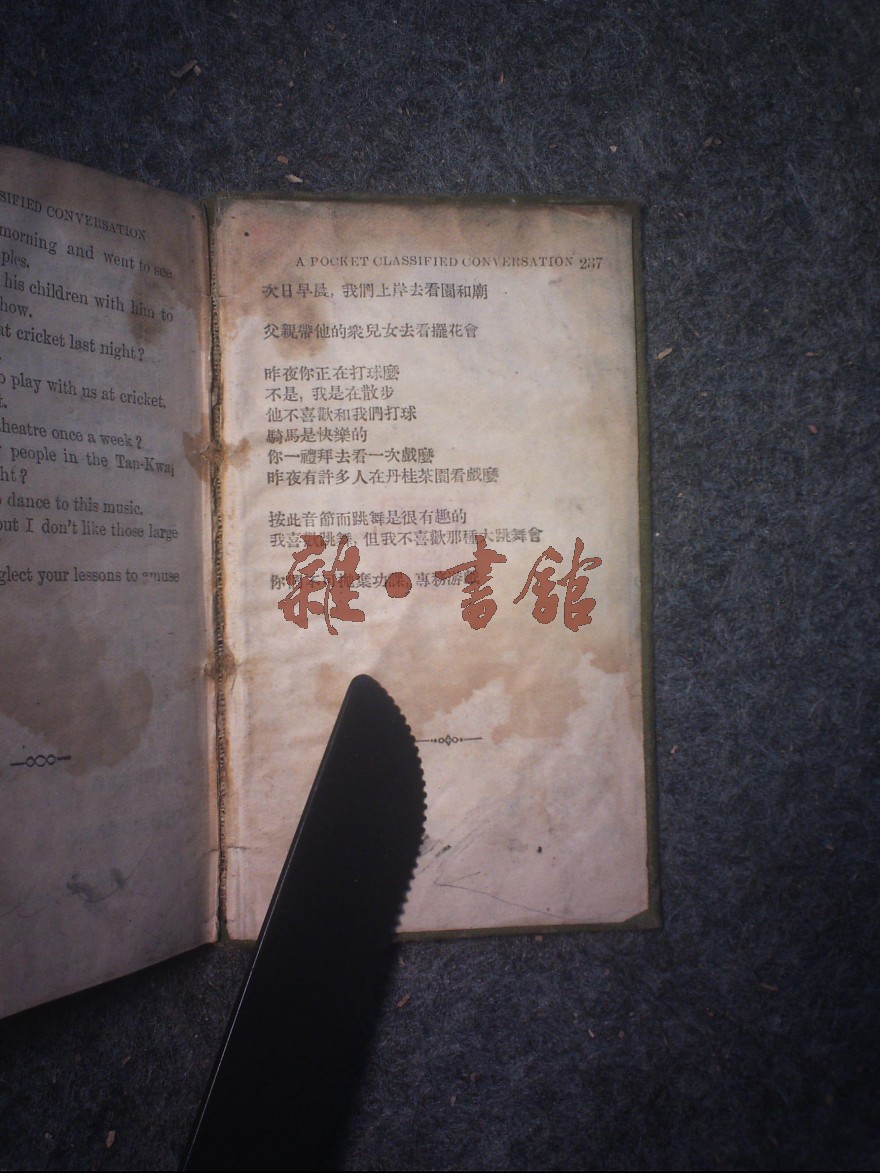 SIFIED CONVERSATION
morning and went to see
ples.
his children with him to
how.
at cricket last night?
o play with us at cricket.
t.
theatre once a week?
people in the Tan-Kwai
ht?
dance to this music.
but I don't like those large
glect your lessons to amuse
A POCKET CLASSIFIED CONVERSATION 237
次日早晨, 我們上岸去看園和廟
父親帶他的衆兒女去看擺花會
昨夜你正在打球麼
不是, 我是在散步
他不喜歡和我們打球
騎馬是快樂的
你一禮拜去看一次戲麼
昨夜有許多人在丹桂茶園看戲麼
按此音節而跳舞是很有趣的
我喜歡跳舞, 但我不喜歡那種大跳舞會
你 不可 棄功課, 專務游戲
雜·書館